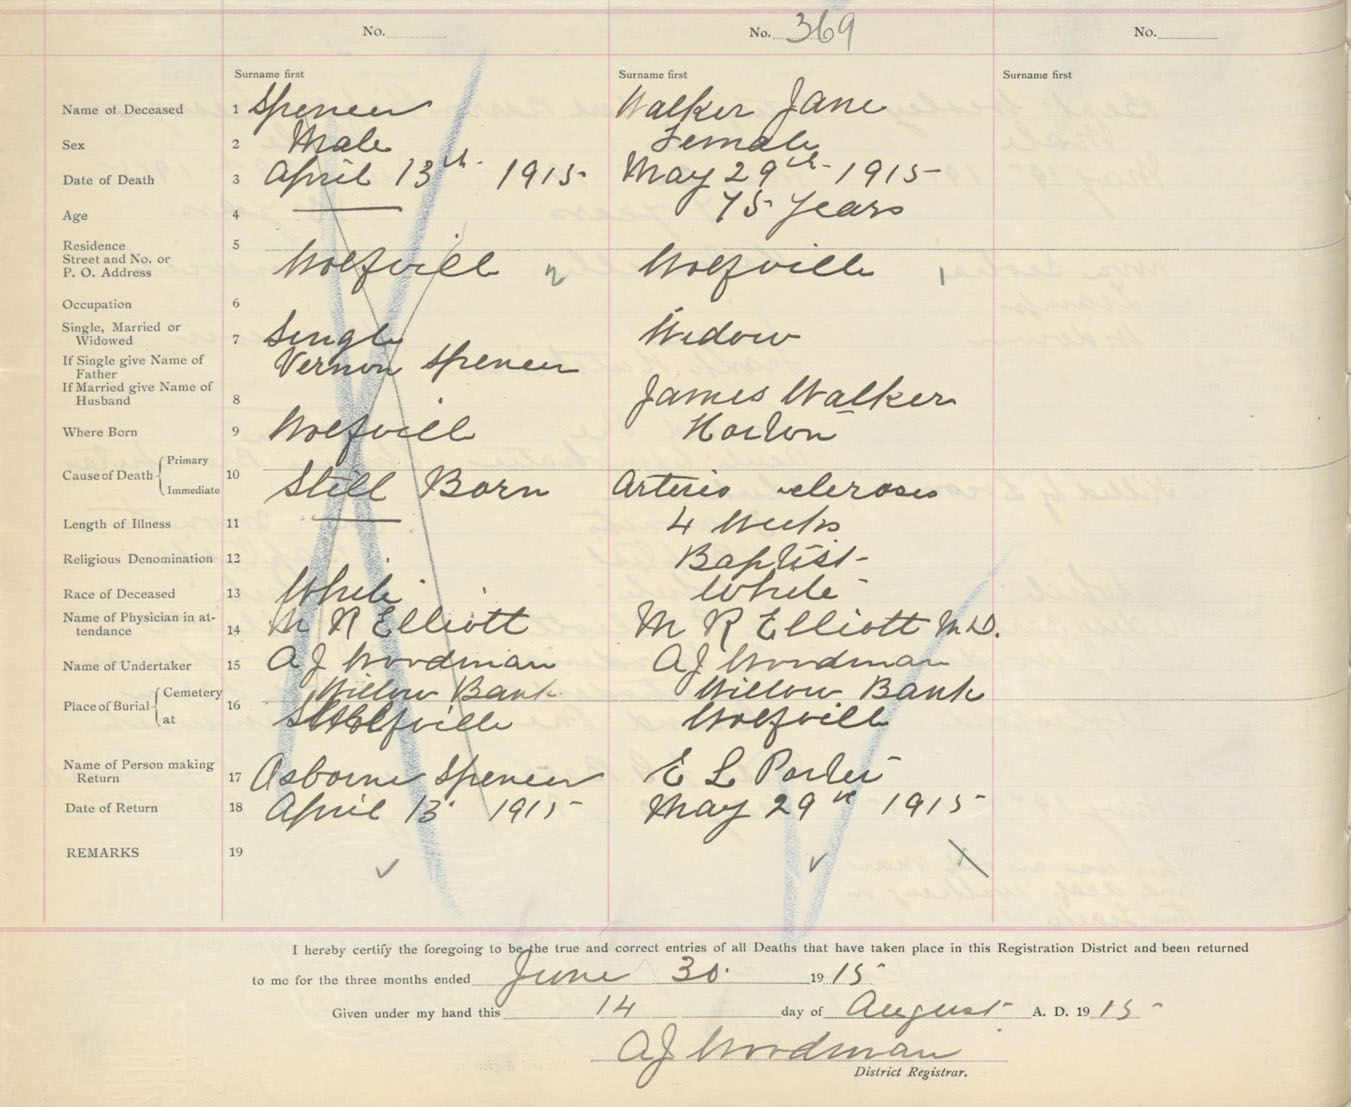 No. No. 369 No.
Surname first Surname first Surname first
Name of Deceased 1 Spencer Walker Jane
Sex 2 Male Female
Date of Death 3 April 13th 1915 May 29th 1915
Age 4 — 75 years
Residence 5
Street and No. or
P. O. Address Wolfville Wolfville
Occupation 6
Single, Married or
Widowed 7 Single Widow
If Single give Name of
Father Vernon Spencer
If Married give Name of
Husband 8 James Walker
Where Born 9 Wolfville Horton
Cause of Death Primary
10 Still Born Arterio scleroses
Immediate
Length of Illness 11 — 4 Weeks
Religious Denomination 12 Baptist
Race of Deceased 13 White White
Name of Physician in at-
tendance 14 M R Elliott M R Elliott M.D.
Name of Undertaker 15 A J Woodman A J Woodman
Place of Burial Cemetery Willow Bank Willow Bank
at 16 Wolfville Wolfville
Name of Person making
Return 17 Asborne Spencer E L Porter
Date of Return 18 April 13 1915 May 29th 1915
REMARKS 19
I hereby certify the foregoing to be the true and correct entries of all Deaths that have taken place in this Registration District and been returned
to me for the three months ended June 30. 1915
Given under my hand this 14 day of August A. D. 1915
A J Woodman
District Registrar.